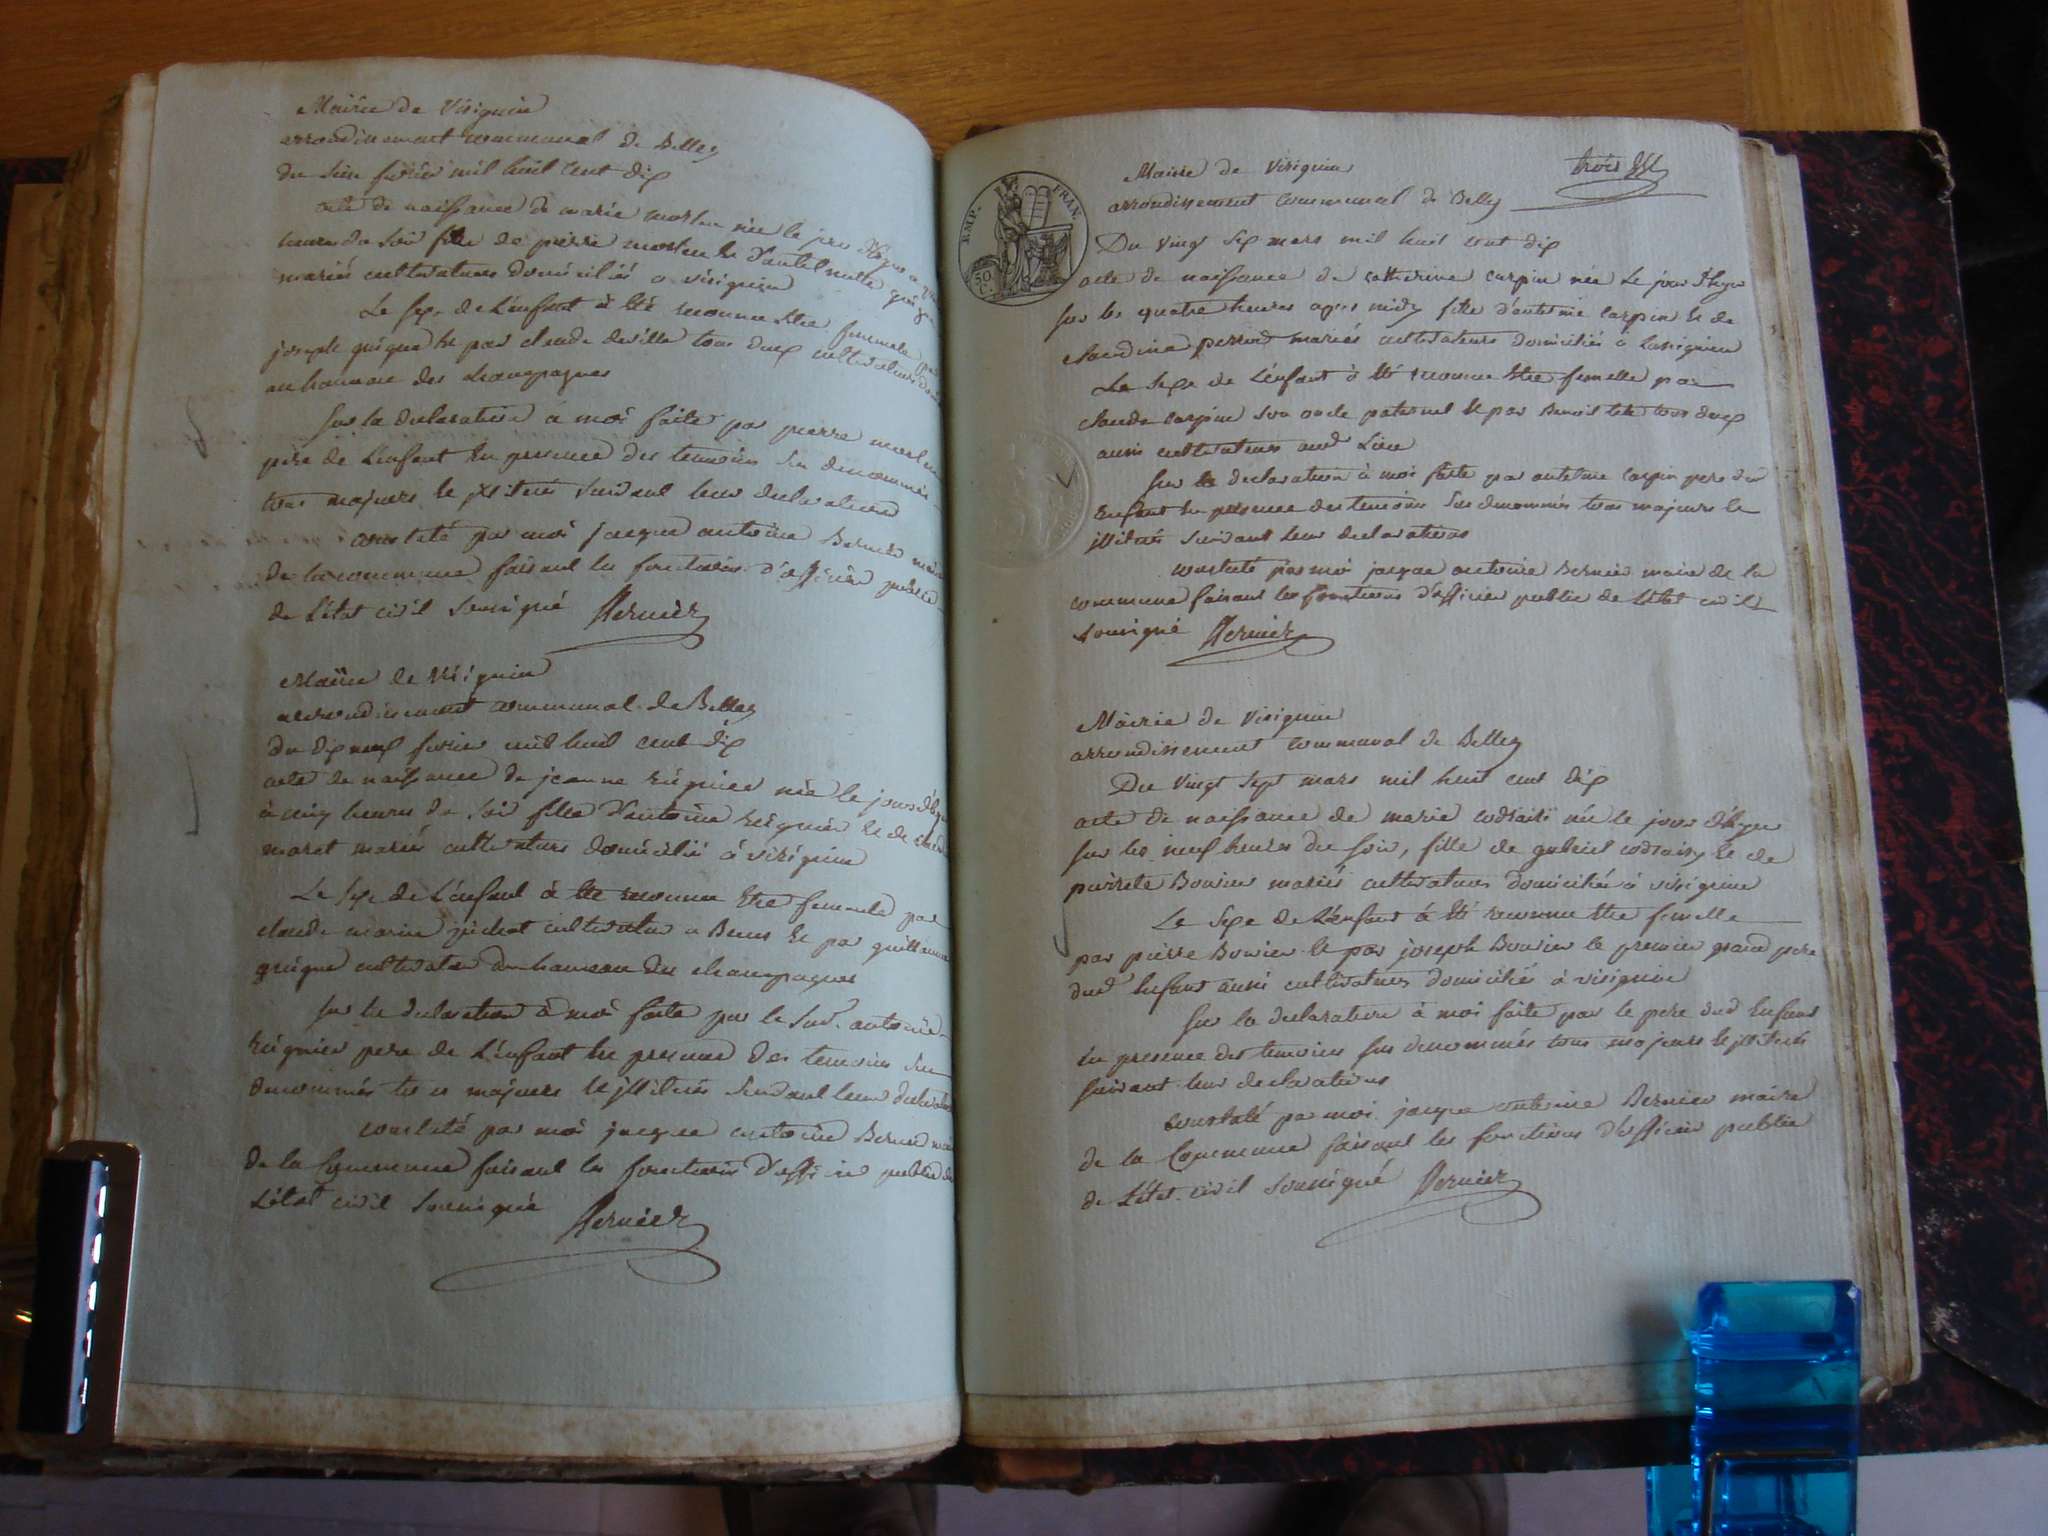 Mairie de Virignin
arrondissement communal de Belley
du six fevrier mil huit cent dix
acte de naissance de marie née le jour d'hyer a
heures du soir fille de pierre et d'antelmette
mariés cultivateurs domiciliés a virignin
Le sexe de L'enfant à été reconnu etre femmele par
joseph guigue et par claude deville tous deux cultivateurs
au hameau des champagnes
sur la declaration à moi faite par pierre
père de L'enfant en presence des temoins sus denommés
tous majeurs et jllitérés suivant leur declaration
constaté par moi jacque antoine Bernier maire
de la commune faisant les fonctions d'officier public
de L'état civil soussigné Bernier
Mairie de Virignin
arrondissement communal de Belley
du dix neuf fevrier mil huit cent dix
acte de naissance de jeanne Réignier née le jour d'hyer
à cinq heures du soir fille d'antoine Réignier et de
moret mariés cultivateurs domicilié à virignin
Le sexe de L'enfant à été reconnu etre femmele par
claude marin cultivateur a Bens et par guillaume
guigue cultivateur du hameau des champagnes
sur la declaration à moi faite par le sud. antoine
Réignier pere de L'enfant en presence des temoins sus
denommés tous majeurs et jllitérés suivant leur declaration
constaté par moi jacque antoine Bernier maire
de la Commune faisant les fonctions d'officier public de
L'état civil soussigné Bernier
trois
EMP. FRAN.
50 C.
Mairie de Virignin
arrondissement communal de Belley
Du vingt six mars mil huit cent dix
acte de naissance de catherine carpin née Le jour d'hyer
sur les quatre heures après midy fille d'antelme carpin et de
claudine perrin mariés cultivateurs domiciliés à
Le sexe de L'enfant à été reconnu etre femelle par
claude carpin son oncle paternel et par Benoit tous deux
aussi cultivateurs aud Lieu
sur la declaration à moi faite par antelme carpin pere du
Enfant en presence des temoins sus denommés tous majeurs et
jllitérés suivant leur declarations
constaté par moi jacque antoine Bernier maire de la
commune faisant les fonctions d'officier public de L'état civil
soussigné Bernier
Mairie de Virignin
arrondissement communal de Belley
Du vingt sept mars mil huit cent dix
acte de naissance de marie née le jour d'hyer
sur les neuf heures du soir, fille de gabriel et de
pierrete Bouvier mariés cultivateurs domiciliés à virignin
Le sexe de L'enfant à été reconnu etre femelle
par pierre Bouvier et par joseph Bouvier le premier grand pere
dud Enfant aussi cultivateurs domiciliés à virignin
sur la declaration à moi faite par le pere dud Enfant
en presence des temoins sus denommés tous majeurs et jllitérés
suivant leur declarations
constaté par moi jacque antoine Bernier maire
de la Commune faisant les fonctions d'officier public
de L'état civil soussigné Bernier